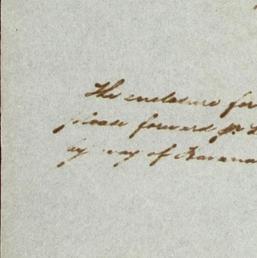 The enclosure for
please forward pr
by way of Havana